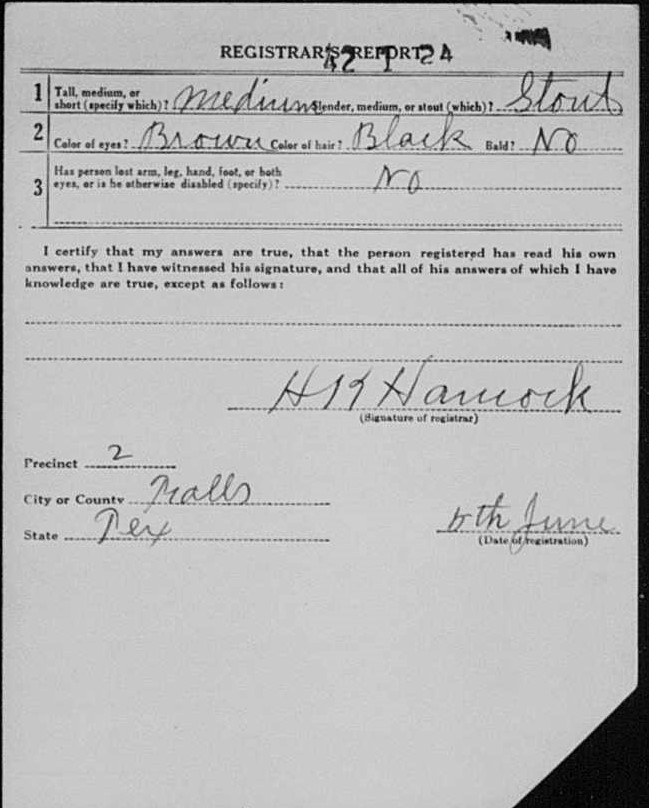 REGISTRAR'S REPORT
42 1 24
1 Tall, medium, or short (specify which)? Medium Slender, medium, or stout (which)? Stout
2 Color of eyes? Brown Color of hair? Black Bald? No
3 Has person lost arm, leg, hand, foot, or both
eyes, or is he otherwise disabled (specify)? No
I certify that my answers are true, that the person registered has read his own
answers, that I have witnessed his signature, and that all of his answers of which I have
knowledge are true, except as follows:
H K Hamock
(Signature of registrar)
Precinct 2
City or County Falls
State Tex
5th June
(Date of registration)